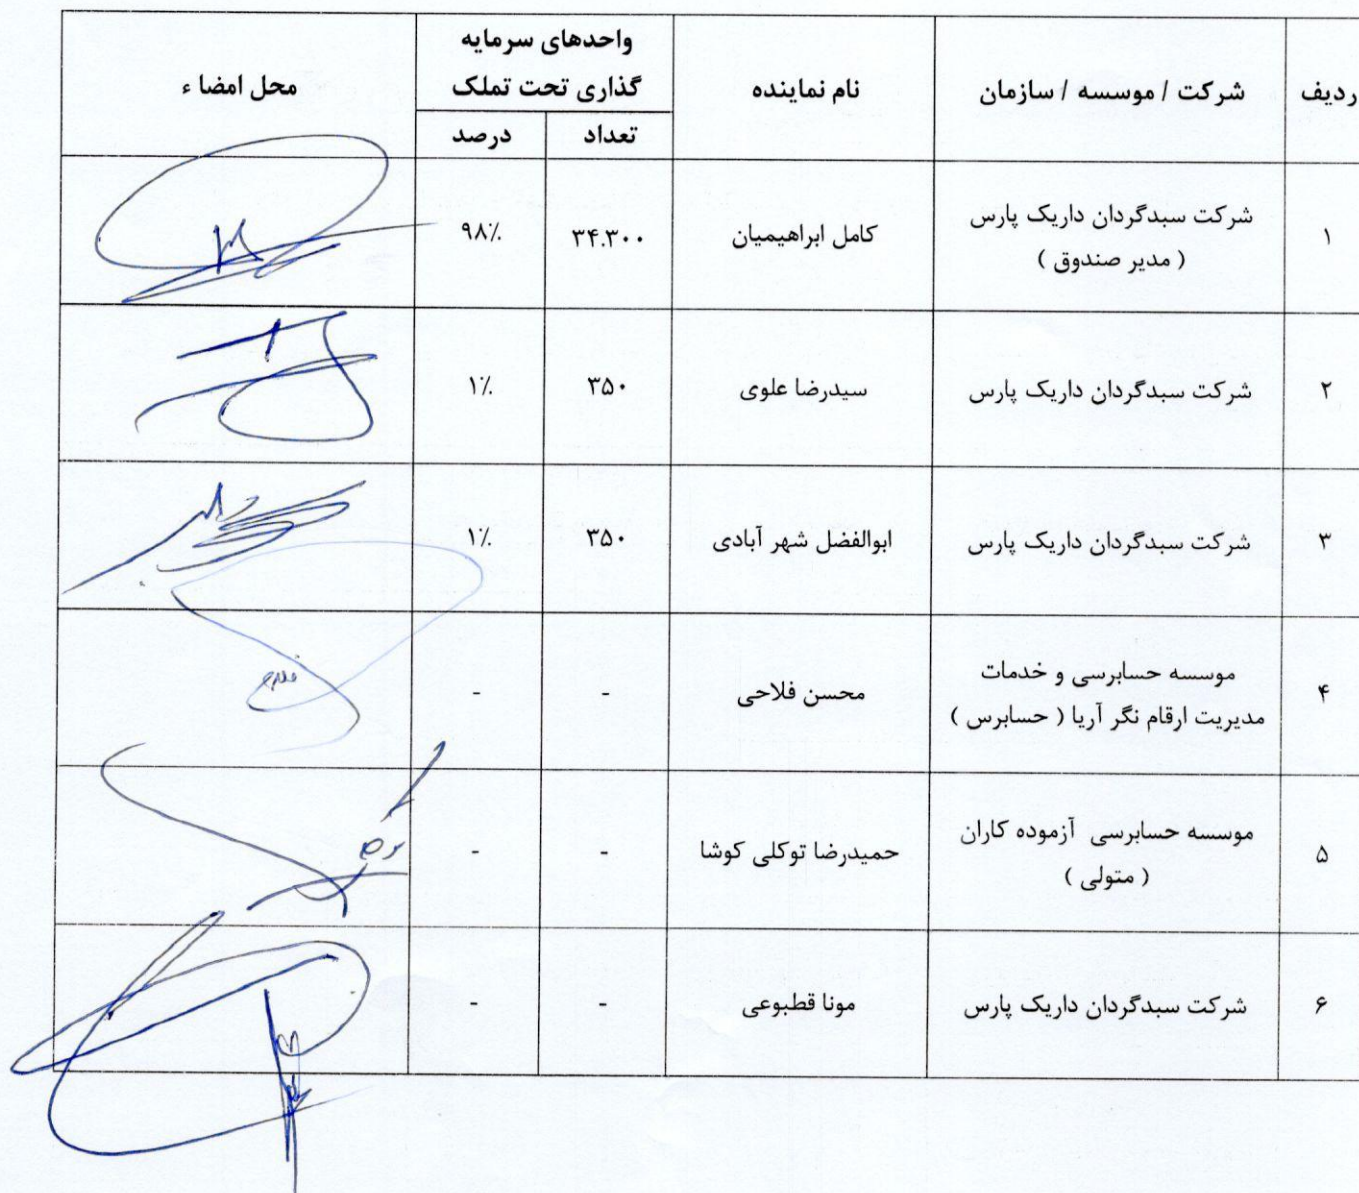 ردیف
شرکت / موسسه / سازمان
نام نماینده
واحدهای سرمایه
گذاری تحت تملک
تعداد
درصد
محل امضاء
۱
شرکت سبدگردان داریک پارس
( مدیر صندوق )
کامل ابراهیمیان
۳۴.۳۰۰
۹۸٪
۲
شرکت سبدگردان داریک پارس
سیدرضا علوی
۳۵۰
۱٪
۳
شرکت سبدگردان داریک پارس
ابوالفضل شهر آبادی
۳۵۰
۱٪
۴
موسسه حسابرسی و خدمات
مدیریت ارقام نگر آریا ( حسابرس )
محسن فلاحی
-
-
۵
موسسه حسابرسی آزموده کاران
( متولی )
حمیدرضا توکلی کوشا
-
-
۶
شرکت سبدگردان داریک پارس
مونا قطبوعی
-
-